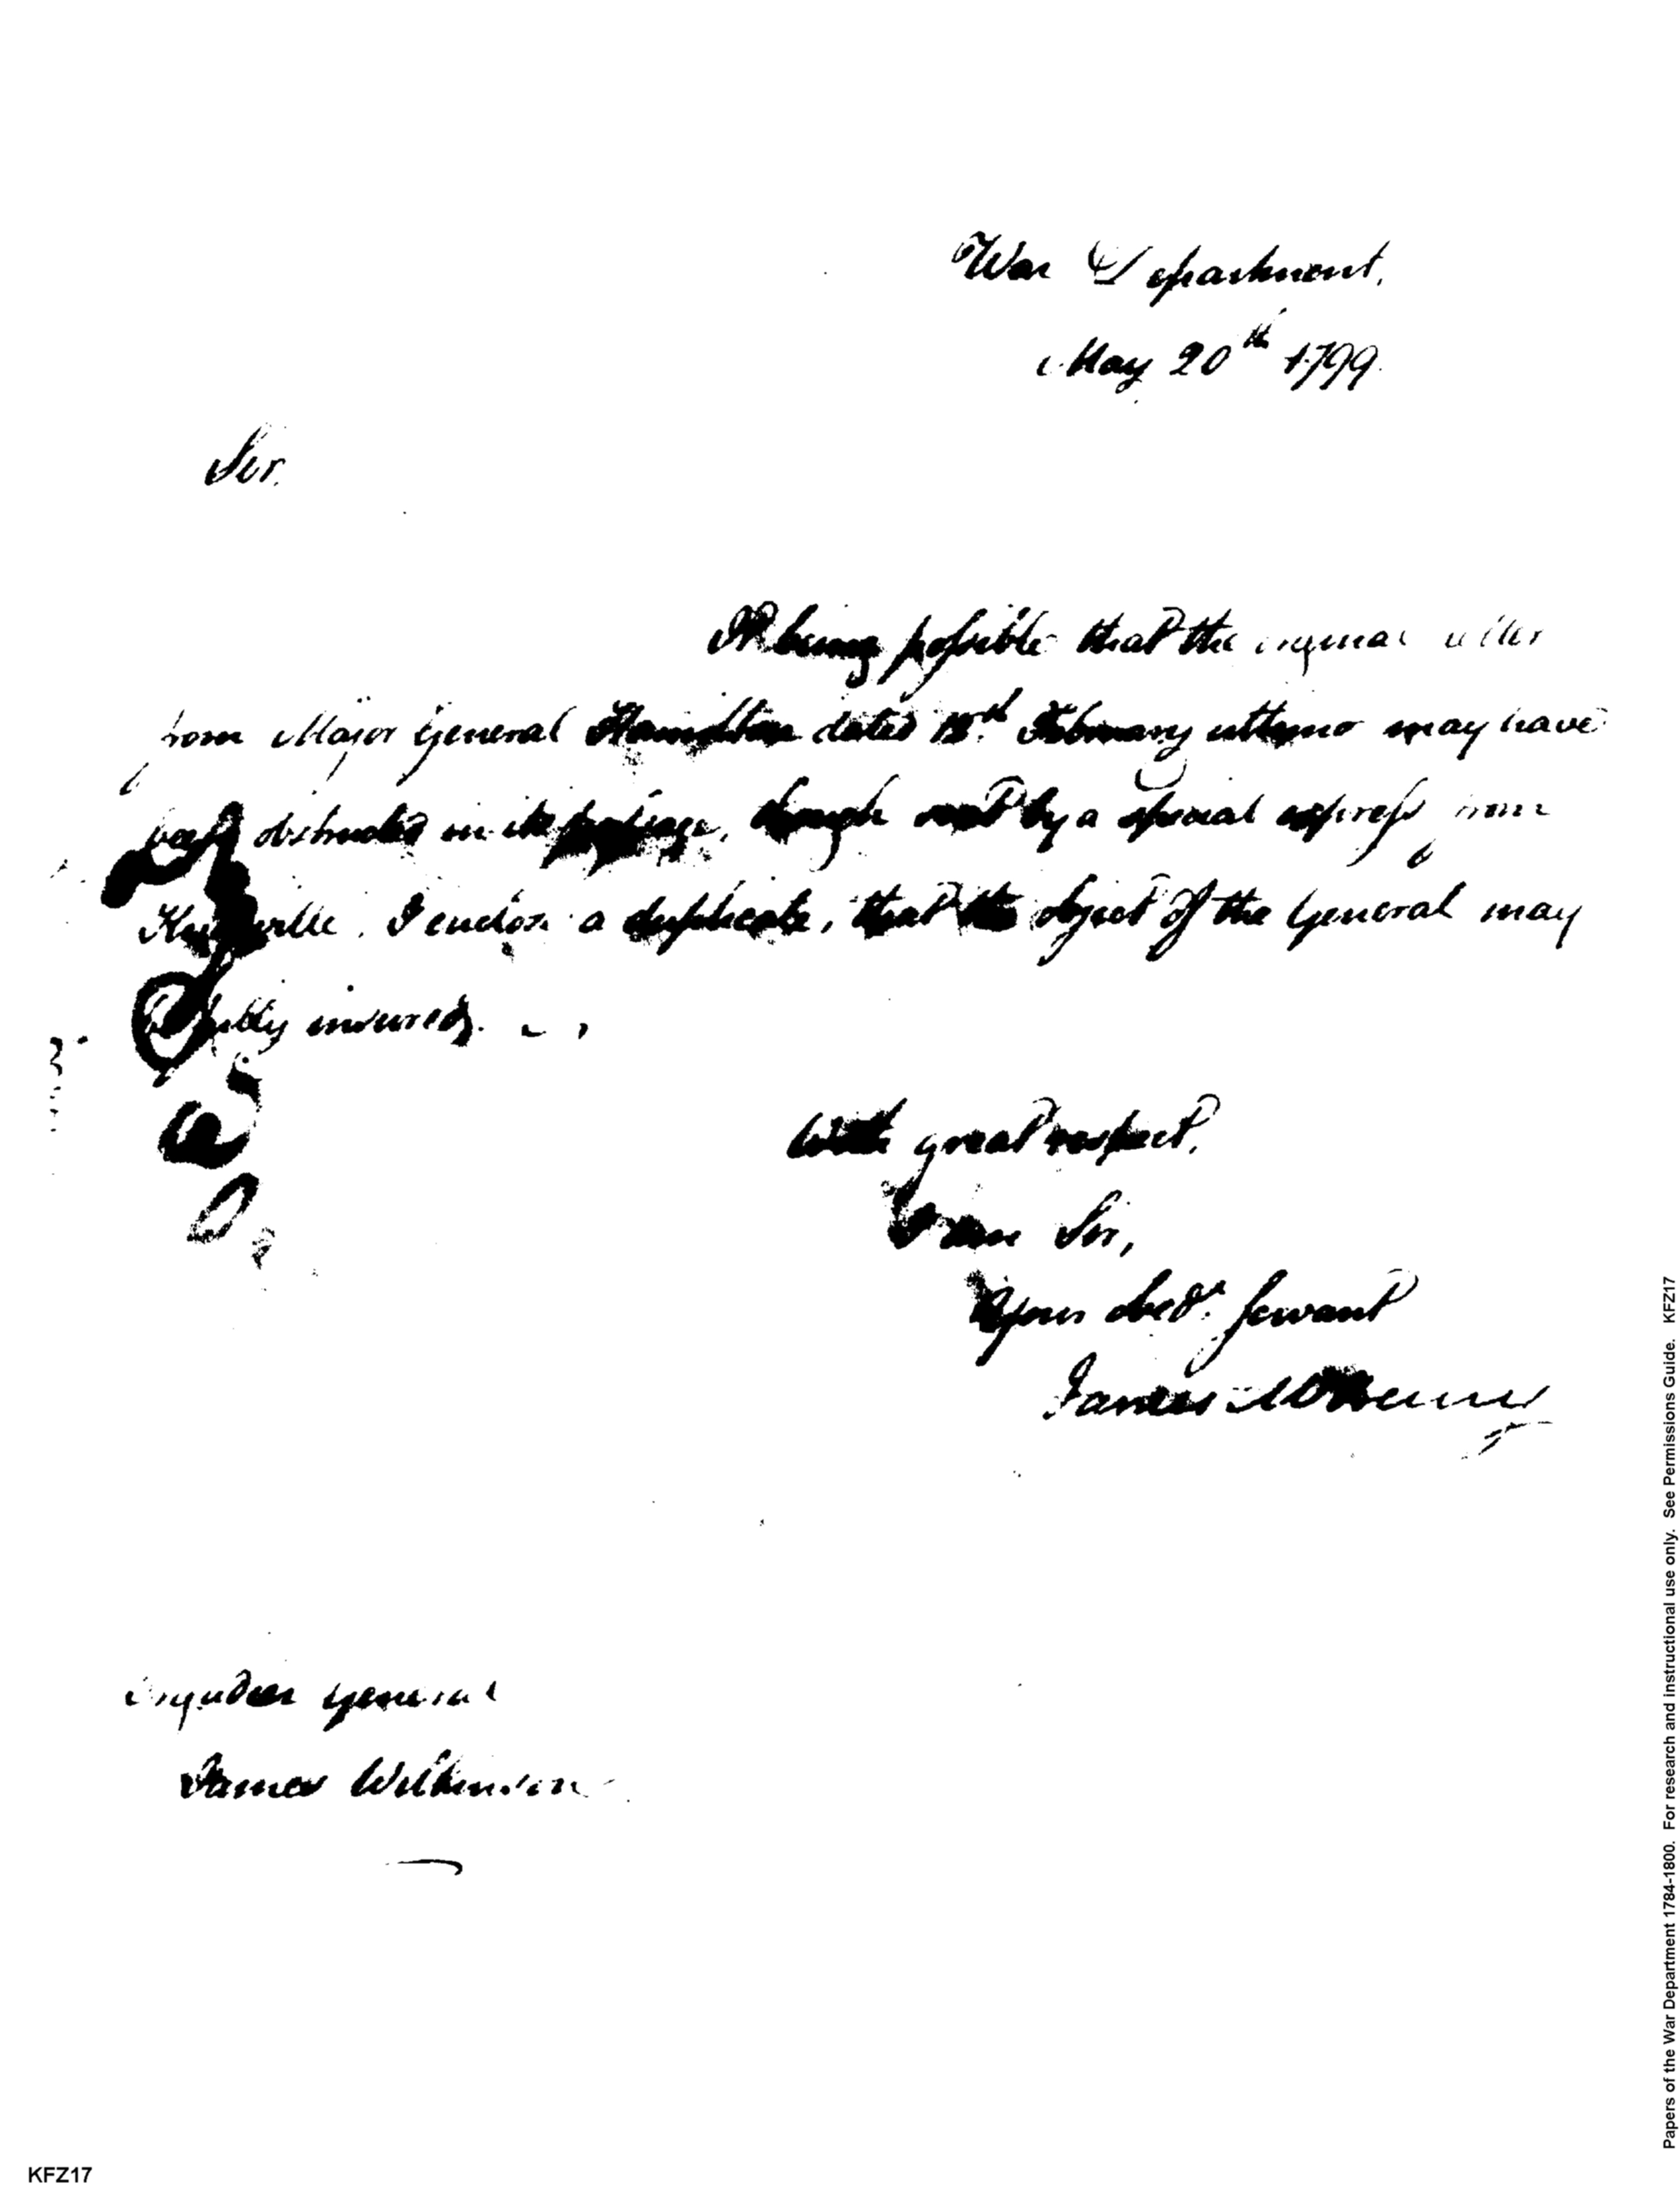 War Department,
May 20th 1799.
Sir.
It being possible that the original letter
from Major General Hamilton dated February ultimo may have
been obstructed in its passage, though by a special express from
Knoxville. I enclose a duplicate, that the object of the General may
be fully insured.
With great respect,
I am Sir,
Your obedt. servant
James McHenry
Brigadier General
James Wilkinson
KFZ17
Papers of the War Department 1784-1800. For research and instructional use only. See Permissions Guide. KFZ17